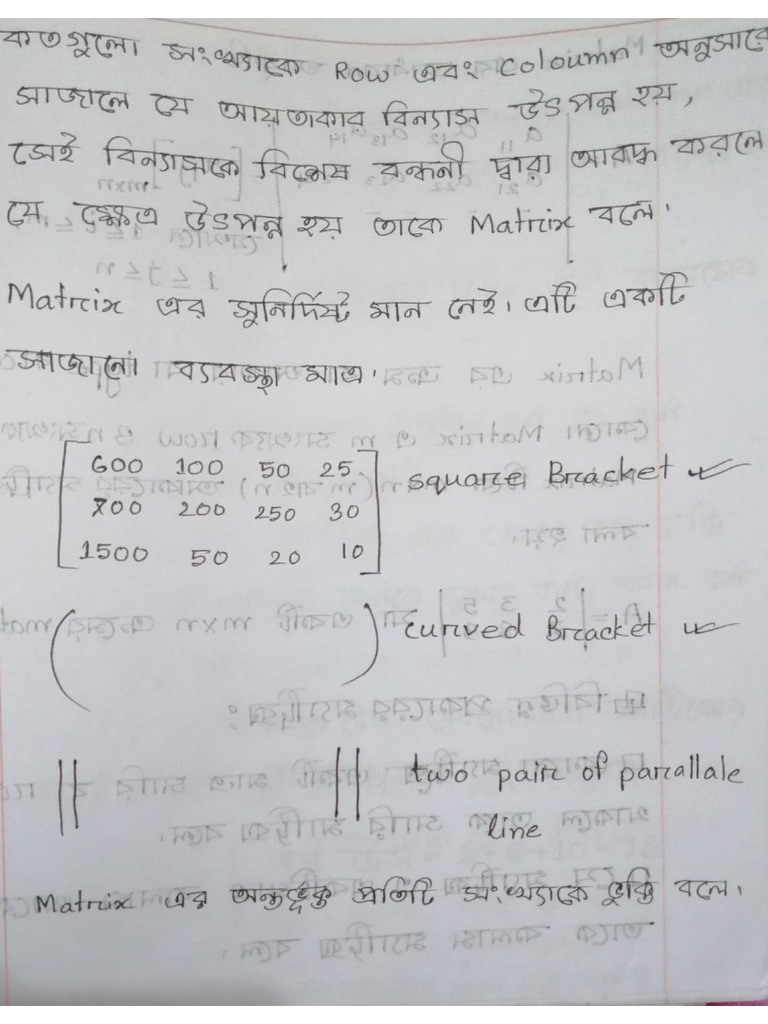 কতগুলো সংখ্যাকে Row এবং Coloumn অনুসারে
সাজালে যে আয়তাকার বিন্যাস উৎপন্ন হয়,
সেই বিন্যাসকে বিশেষ বন্ধনী দ্বারা আবদ্ধ করলে
যে ক্ষেত্র উৎপন্ন হয় তাকে Matrix বলে।
Matrix এর সুনির্দিষ্ট মান নেই। এটি একটি
সাজানো ব্যবস্থা মাত্র।
600 100 50 25 square Bracket
700 200 250 30
1500 50 20 10
Curved Bracket
two pair of parallale
line
Matrix এর অন্তর্ভুক্ত প্রতিটি সংখ্যাকে ভুক্তি বলে।